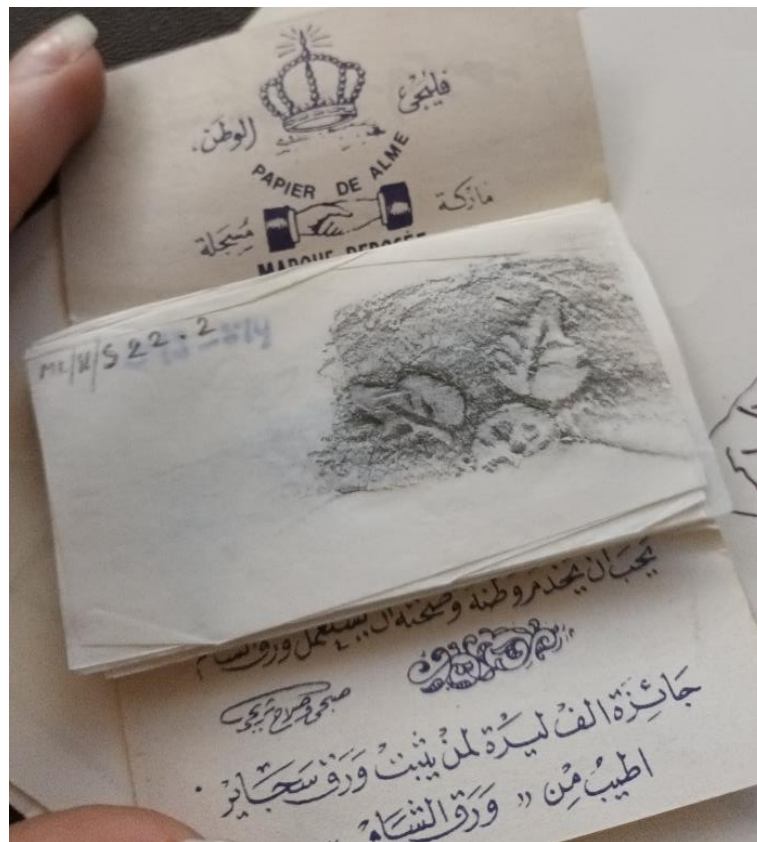 فليحى الوطن
PAPIER DE ALME
ماركة مسجلة
MARQUE DEPOSÉE
S 22 . 2
يجب ان يخدم وطنه وصحته ان يستعمل ورق شام
جائزة الف ليرة لمن يثبت ورق سجاير
اطيب من " ورق الشام "